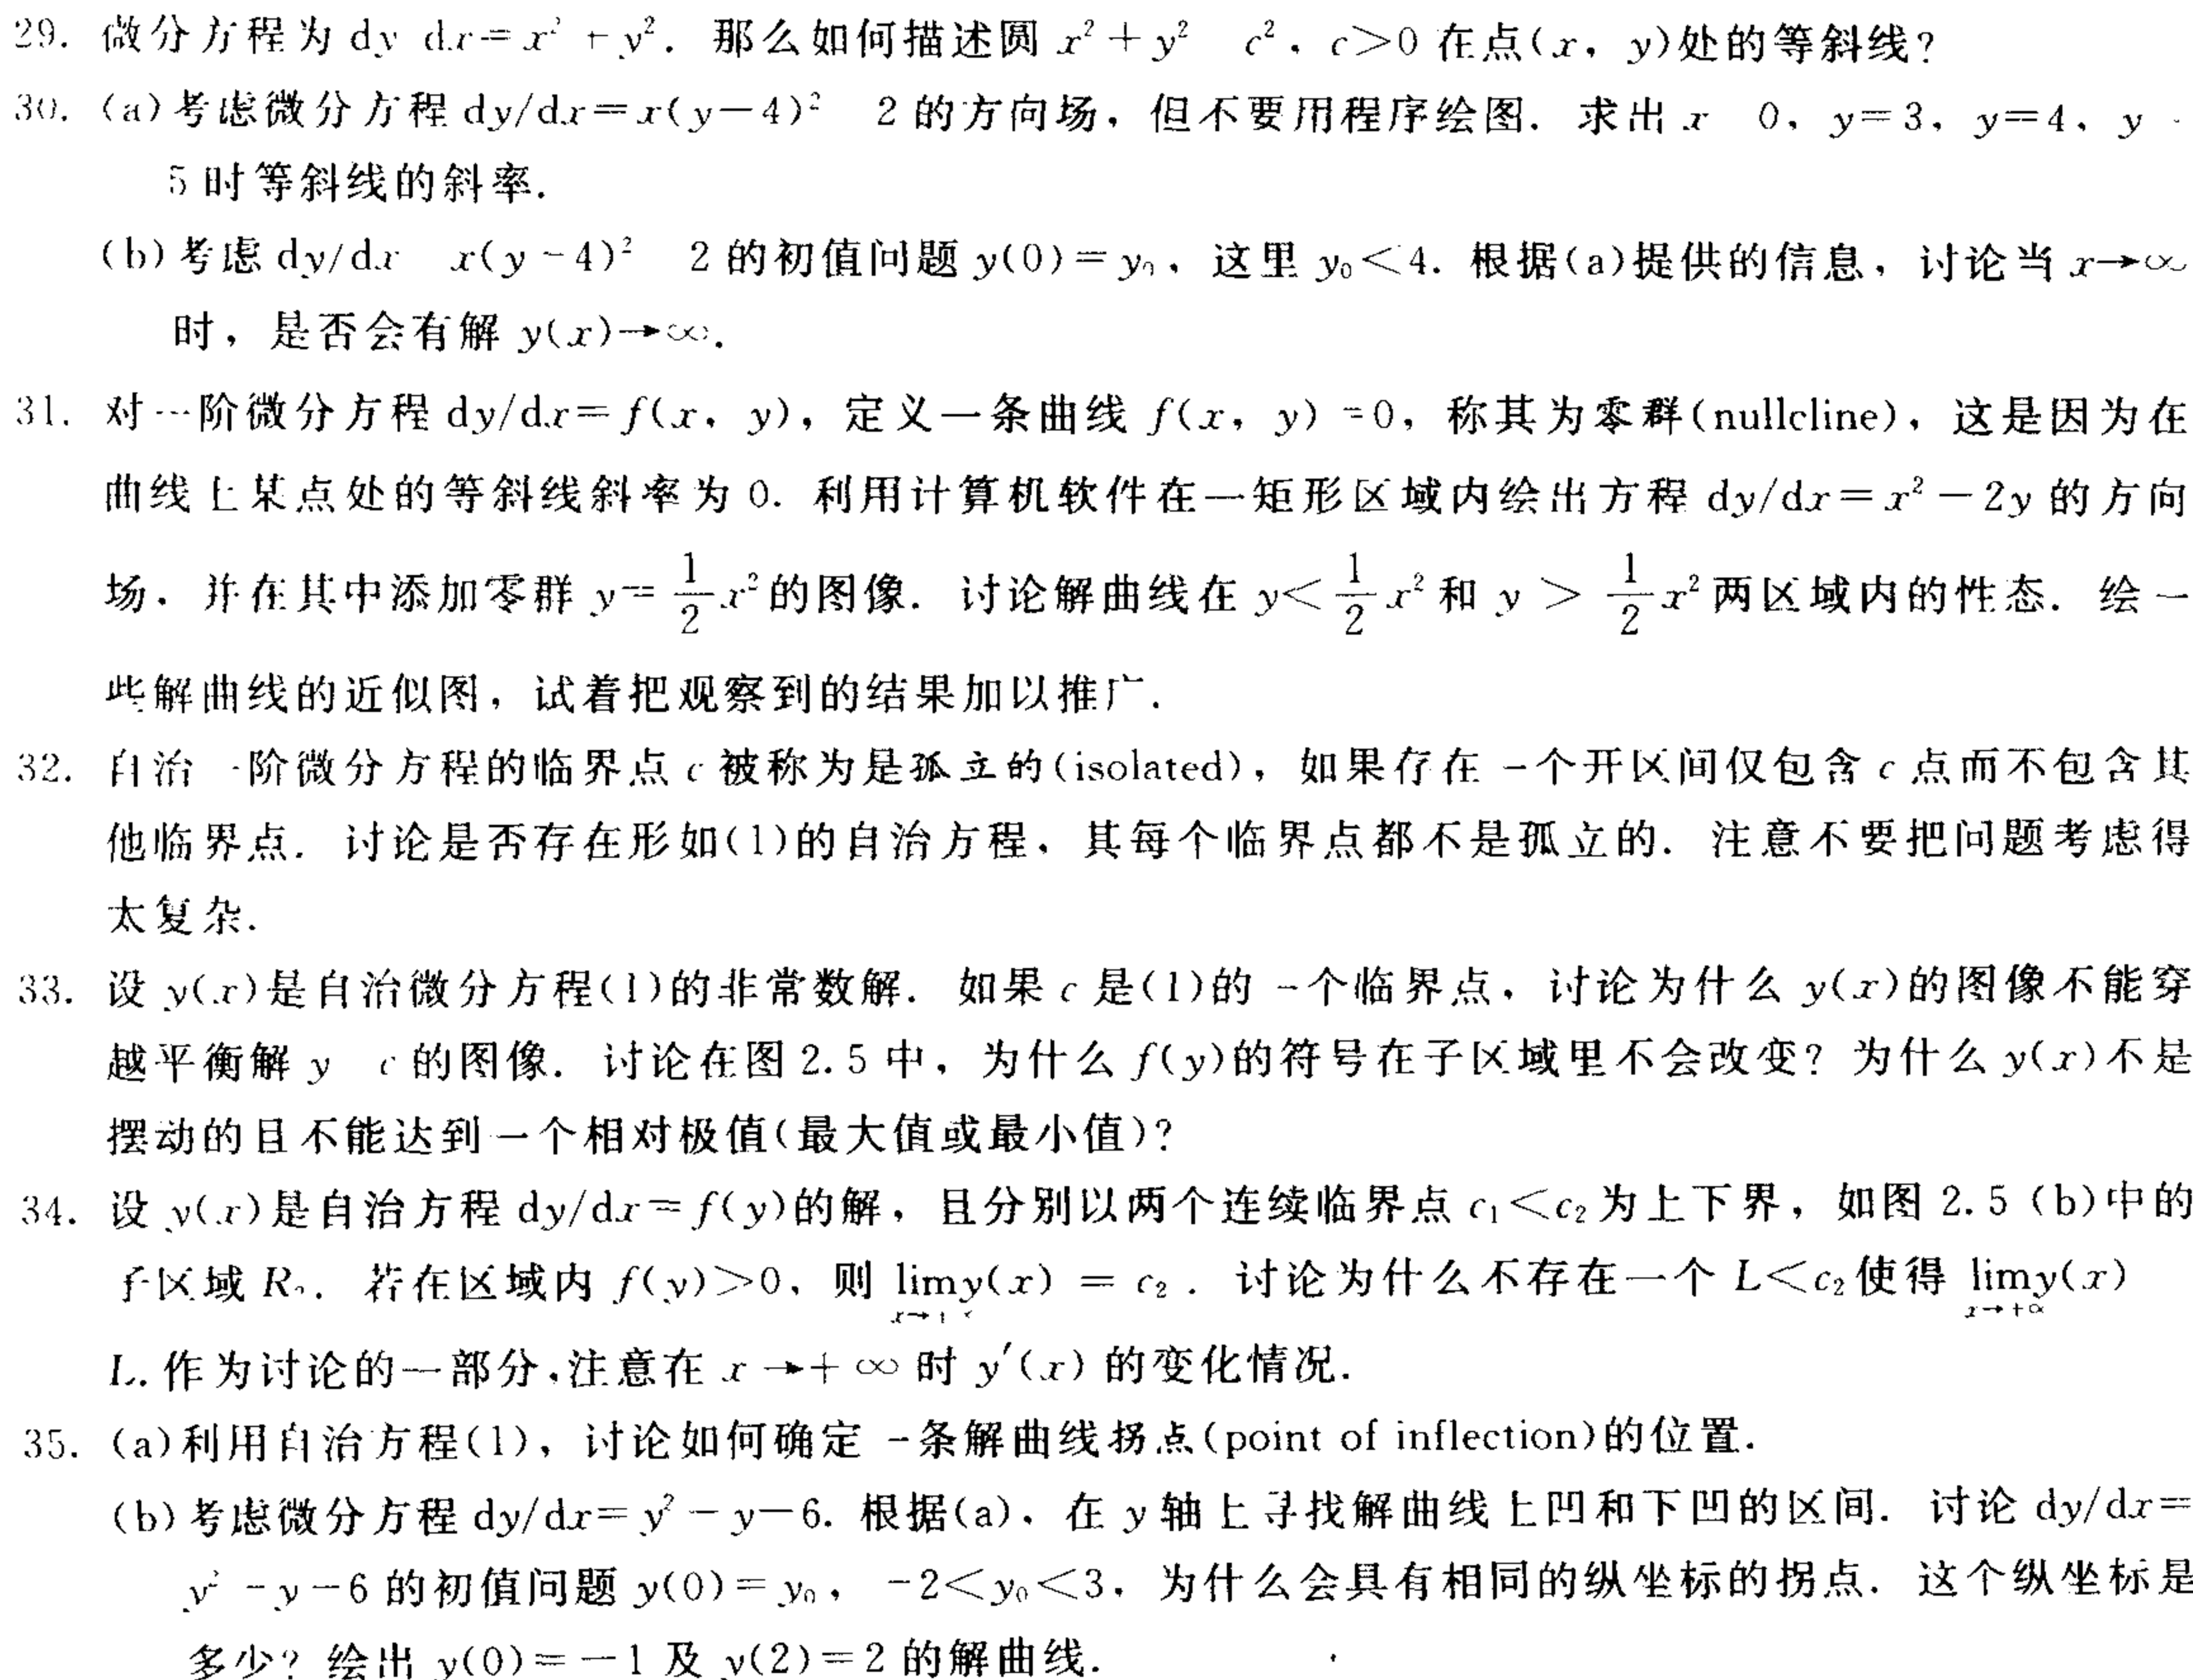 29. 微分方程为 dy dx = x² + y². 那么如何描述圆 x² + y² c², c>0 在点(x, y)处的等斜线?
30. (a)考虑微分方程 dy/dx = x(y-4)² 2 的方向场, 但不要用程序绘图. 求出 x 0, y=3, y=4, y
5 时等斜线的斜率.
(b)考虑 dy/dx x(y-4)² 2 的初值问题 y(0) = y₀, 这里 y₀<4. 根据(a)提供的信息, 讨论当 x→∞
时, 是否会有解 y(x)→∞.
31. 对一阶微分方程 dy/dx = f(x, y), 定义一条曲线 f(x, y) = 0, 称其为零群(nullcline), 这是因为在
曲线上某点处的等斜线斜率为 0. 利用计算机软件在一矩形区域内绘出方程 dy/dx = x² - 2y 的方向
场, 并在其中添加零群 y = 1/2 x² 的图像. 讨论解曲线在 y < 1/2 x² 和 y > 1/2 x² 两区域内的性态. 绘一
些解曲线的近似图, 试着把观察到的结果加以推广.
32. 自治一阶微分方程的临界点 c 被称为是孤立的(isolated), 如果存在一个开区间仅包含 c 点而不包含其
他临界点. 讨论是否存在形如(1)的自治方程, 其每个临界点都不是孤立的. 注意不要把问题考虑得
太复杂.
33. 设 y(x)是自治微分方程(1)的非常数解. 如果 c 是(1)的一个临界点, 讨论为什么 y(x)的图像不能穿
越平衡解 y c 的图像. 讨论在图 2.5 中, 为什么 f(y)的符号在子区域里不会改变? 为什么 y(x)不是
摆动的且不能达到一个相对极值(最大值或最小值)?
34. 设 y(x)是自治方程 dy/dx = f(y)的解, 且分别以两个连续临界点 c₁<c₂ 为上下界, 如图 2.5 (b)中的
子区域 R₂. 若在区域内 f(y)>0, 则 lim y(x) = c₂. 讨论为什么不存在一个 L<c₂ 使得 lim x→+∞ y(x)
L. 作为讨论的一部分, 注意在 x→+∞ 时 y′(x) 的变化情况.
35. (a)利用自治方程(1), 讨论如何确定一条解曲线拐点(point of inflection)的位置.
(b)考虑微分方程 dy/dx = y² - y - 6. 根据(a), 在 y 轴上寻找解曲线上凹和下凹的区间. 讨论 dy/dx =
y² - y - 6 的初值问题 y(0) = y₀, -2<y₀<3, 为什么会具有相同的纵坐标的拐点. 这个纵坐标是
多少? 绘出 y(0) = -1 及 y(2) = 2 的解曲线.